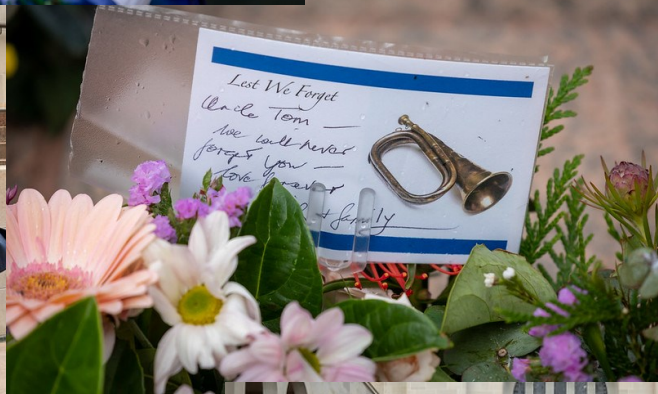 Lest We Forget
Uncle Tom —
we will never
forget you —
love forever
+ family